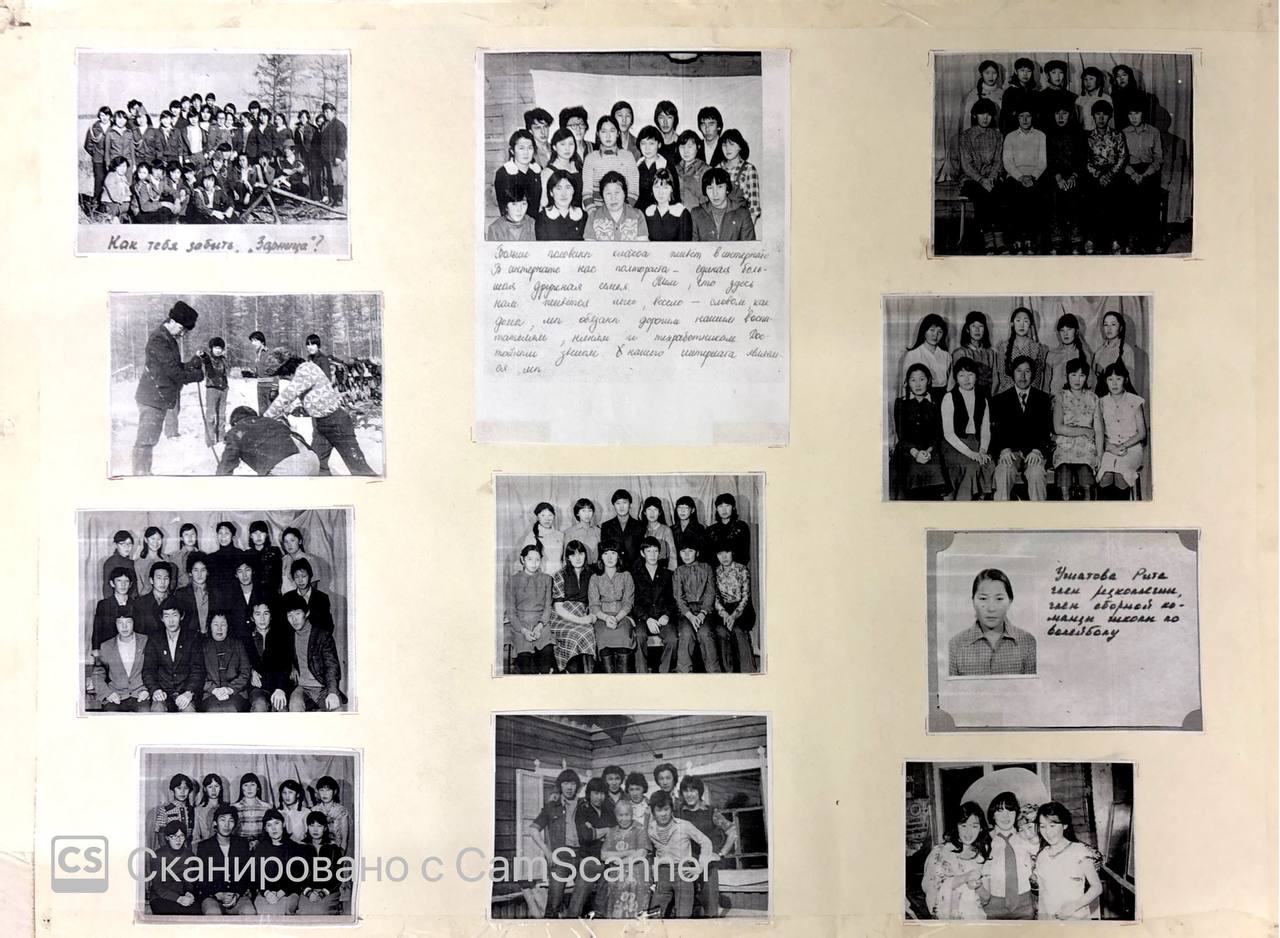 Как тебя забыть, „Зарница“?
Больше половины класса живет в интернате.
В интернате нас полтораста – единая боль-
шая дружная семья. Тем, что здесь
нам живётся легко, весело – словом, как
дома, мы обязаны дорогим нашим воспи-
тателям, няням и техработникам. Дос-
тойным звеном в нашего интерната явля
ся мы.
Ушатова Рита
член редколлегии,
член сборной ко-
манды школы по
волейболу
CS Сканировано с CamScanner